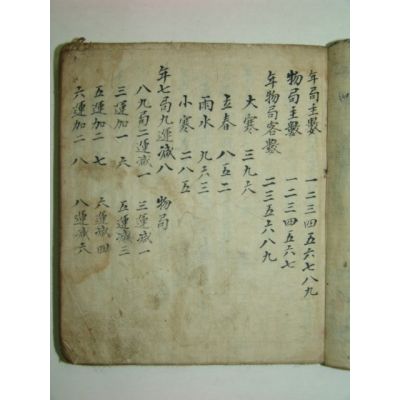 年局主數 一二三四五六七八九
物局主數 一二三四五六七
年物局客數 二三五六八九
大寒 三九六
立春 八五二
雨水 九六三
小寒 二八五
年七局九運減八 物局
八九局二運減一 三運減一
三運加一 六 五運減三
五運加二 七 六運減四
六運加二 八 八運減六